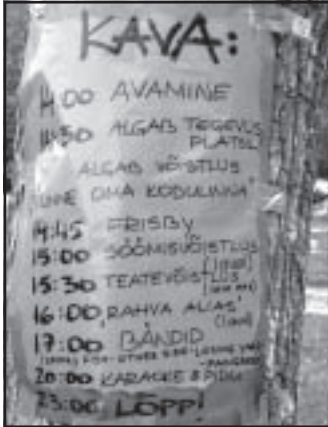 KAVA:
14:00 AVAMINE
14:30 ALGAB TEGEVUS
PLATSIL
ALGAB VÕISTLUS
"UNNE OMA KODULINNA"
14:45 FRISBY
15:00 SÖÖMISVÕISTLUS
15:30 TEATEVÕIST
16:00 "RAHVA ALIAS"
17:00 BÄNDID
OTHER SIDE
20:00 KARAOKE & PIDU
23:00 LÕPP!